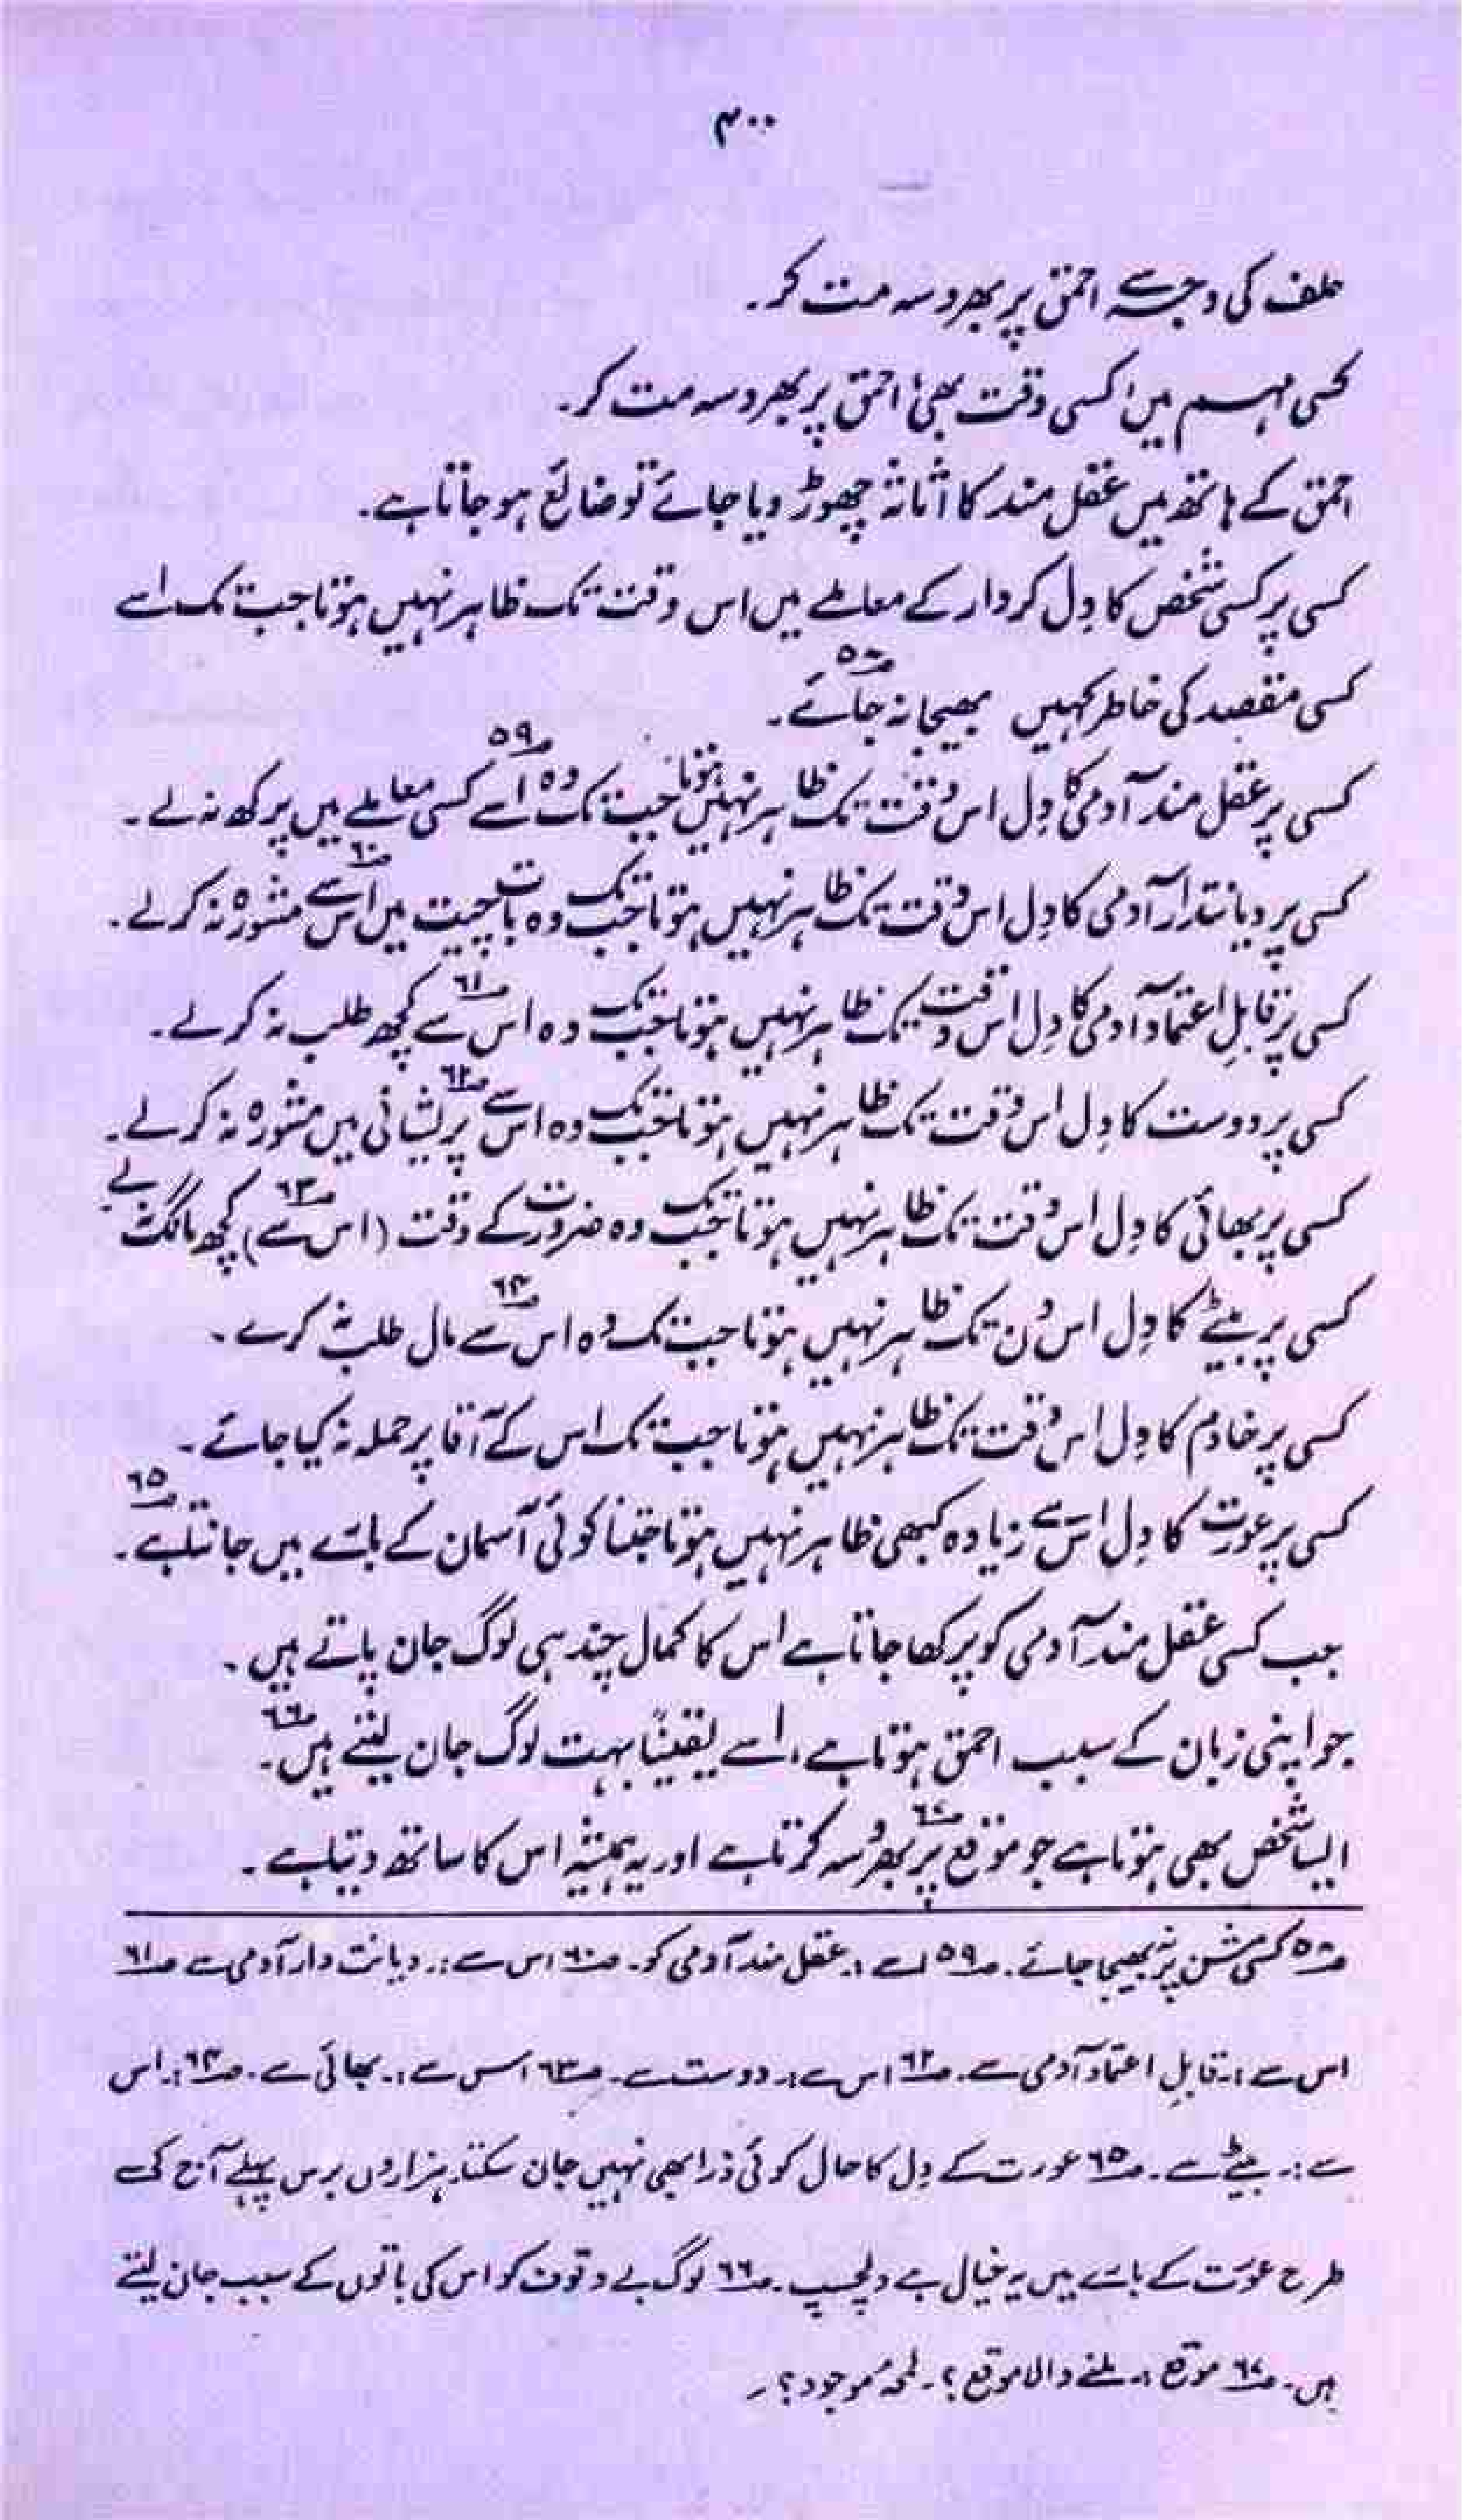 ۴۰۰
حلف کی وجہ سے احمق پر بھروسہ مت کر۔
کسی مہم میں، کسی وقت بھی، احمق پر بھروسہ مت کر۔
احمق کے ہاتھ میں عقل مند کا اثاثہ چھوڑ دیا جائے تو ضائع ہو جاتا ہے۔
کسی پر کسی شخص کا دِل کردار کے معاملے میں اس وقت تک ظاہر نہیں ہوتا جب تک اسے
کسی مقصد کی خاطر کہیں بھیجا نہ جائے۵۸۔
کسی پر عقل مند آدمی کا دِل اس وقت تک ظاہر نہیں ہوتا جب تک وہ اسے۵۹ کسی معاملے میں پرکھ نہ لے۔
کسی پر دیانتدار آدمی کا دِل اس وقت تک ظاہر نہیں ہوتا جب تک وہ بات چیت میں اس سے۶۰ مشورہ نہ کرلے۔
کسی پر قابلِ اعتماد آدمی کا دِل اس وقت تک ظاہر نہیں ہوتا جب تک وہ اس سے۶۱ کچھ طلب نہ کرلے۔
کسی پر دوست کا دِل اس وقت تک ظاہر نہیں ہوتا جب تک وہ اس سے۶۲ پریشانی میں مشورہ نہ کرلے۔
کسی پر بھائی کا دِل اس وقت تک ظاہر نہیں ہوتا جب تک وہ ضرورت کے وقت (اس سے۶۳) کچھ مانگ نہ لے۔
کسی پر بیٹے کا دِل اس دن تک ظاہر نہیں ہوتا جب تک وہ اس سے۶۴ مال طلب نہ کرے۔
کسی پر خادم کا دِل اس وقت تک ظاہر نہیں ہوتا جب تک اس کے آقا پر حملہ نہ کیا جائے۔
کسی پر عورت کا دِل اس سے زیادہ کبھی ظاہر نہیں ہوتا جتنا کوئی آسمان کے بارے میں جانتا ہے۶۵۔
جب کسی عقل مند آدمی کو پرکھا جاتا ہے اس کا کمال چند ہی لوگ جان پاتے ہیں۔
جو اپنی زبان کے سبب احمق ہوتا ہے، اسے یقیناً بہت لوگ جان لیتے ہیں۶۶۔
ایسا شخص بھی ہوتا ہے جو موقع۶۷ پر بھروسہ کرتا ہے اور یہ ہمیشہ اس کا ساتھ دیتا ہے۔
۵۸ کسی مشن پر نہ بھیجا جائے۔ ۵۹ اسے:۔ عقل مند آدمی کو۔ ۶۰ اس سے:۔ دیانت دار آدمی سے ۶۱
اس سے:۔ قابلِ اعتماد آدمی سے۔ ۶۲ اس سے:۔ دوست سے۔ ۶۳ اس سے:۔ بھائی سے۔ ۶۴:۔ اس
سے:۔ بیٹے سے۔ ۶۵ عورت کے دِل کا حال کوئی ذرا بھی نہیں جان سکتا۔ ہزاروں برس پہلے آج کی
طرح عورت کے بارے میں یہ خیال ہے دلچسپ۔ ۶۶ لوگ بے وقوف کو اس کی باتوں کے سبب جان لیتے
ہیں۔ ۶۷ موقع:۔ ملنے والا موقع؟۔ لمحۂ موجود؟۔